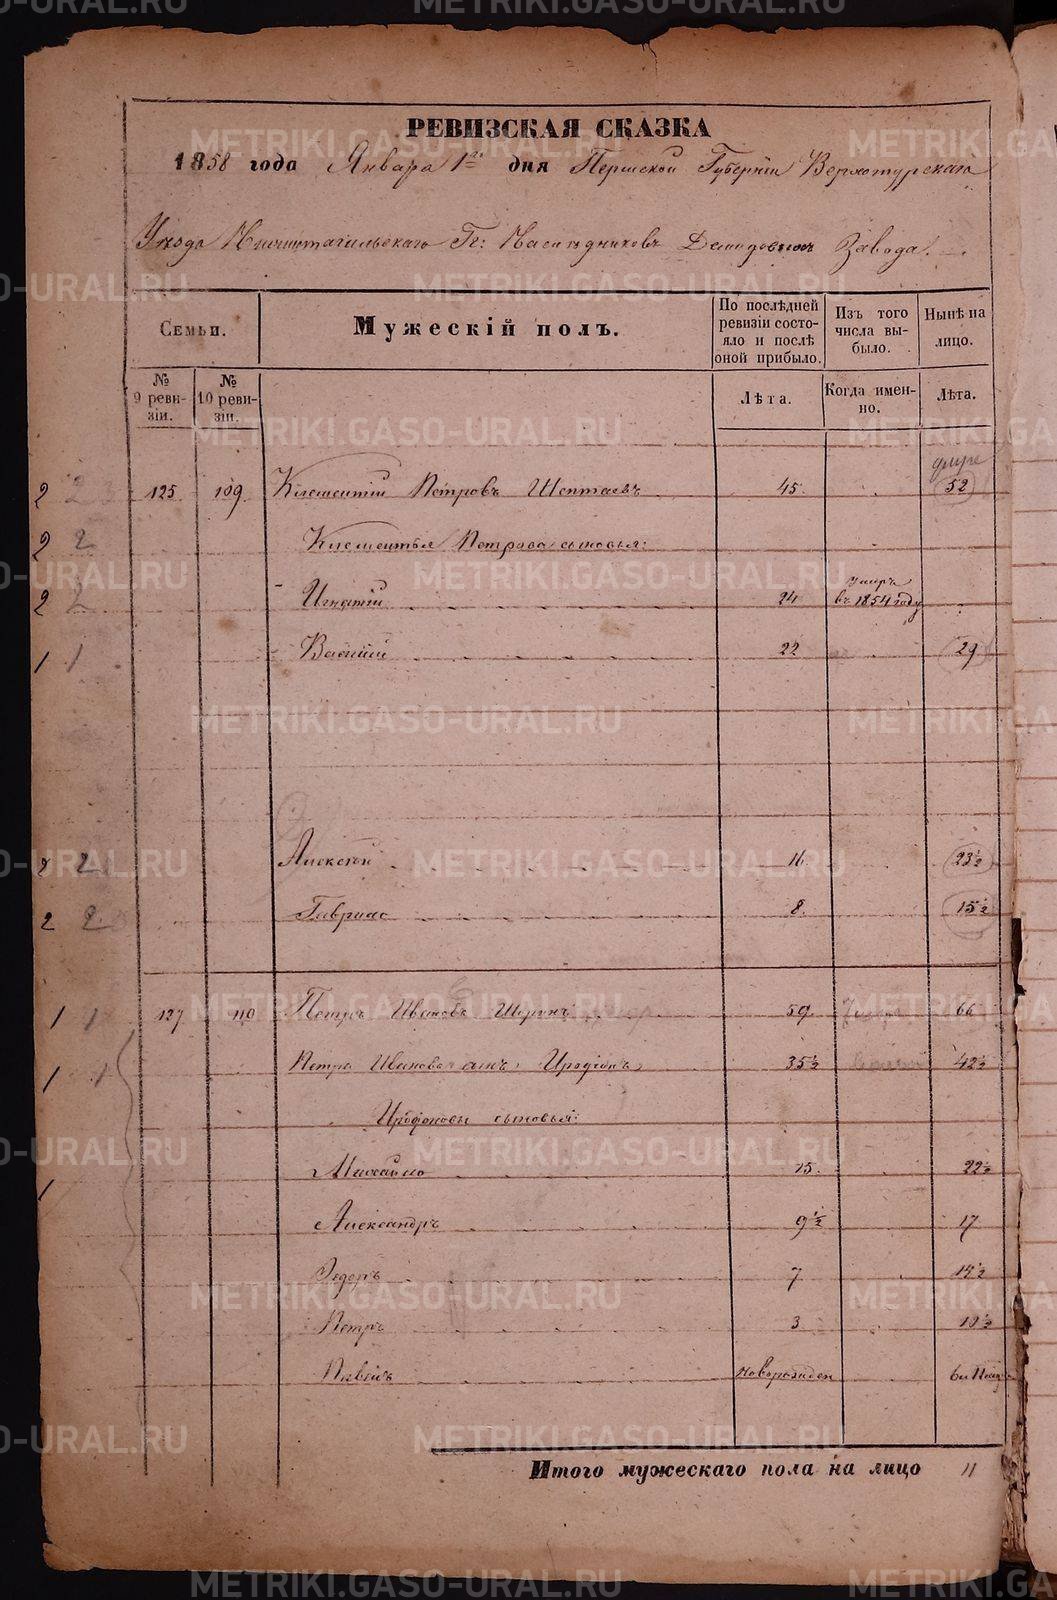 METRIKI.GASO-URAL.RU
РЕВИЗСКАЯ СКАЗКА
1858 года Января 1го дня Пермской Губернiи Верхотурскаго
Уезда Нижнетагильскаго Гг: Наследниковъ Демидовыхъ Завода.
Семьи.
Мужескiй полъ.
По послѣдней ревизiи состояло и послѣ оной прибыло.
Изъ того числа выбыло.
Нынѣ на лицо.
№ 9 ревизiи.
№ 10 ревизiи.
Лѣта.
Когда именно.
Лѣта.
2 2 125. 109. Клементiй Петровъ 45. 52
2 2 Клементья Петрова сыновья:
2 2 Игнатiй 24 умеръ въ 1854 году
1 1 Василiй 22 29
2 2 Алексѣй 16 23½
2 2 Гаврило 8. 15½
1 1 127 110 Петръ Ивановъ 59 66
1 1 Петра Иванова сынъ Иродiонъ 35½ 42½
Иродiоновы сыновья:
1 Михайло 15. 22½
Александръ 9½ 17
Федоръ 7 14½
Петръ 3 10½
Павелъ новорожден
Итого мужескаго пола на лицо 11